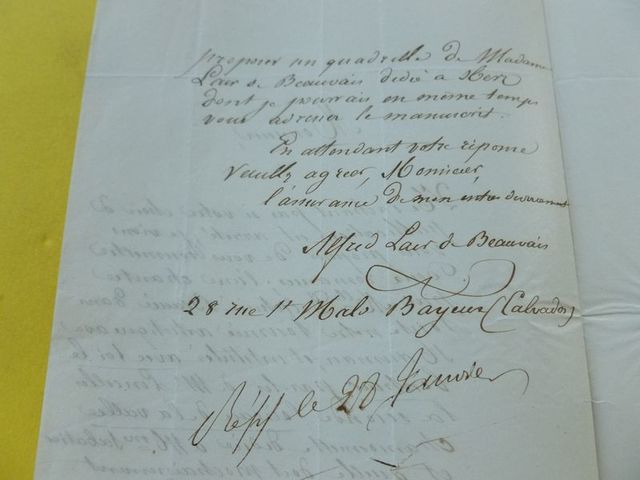 proposer un quadrille de Madame
Lair de Beauvais dédié à Herz
dont je pourrais en même temps
vous adresser le manuscrit.
En attendant votre réponse
Veuillez agréer, Monsieur,
l'assurance de mon entier dévouement
Alfred Lair de Beauvais
28 rue St Malo Bayeux (Calvados)
Rép le 28 Janvier